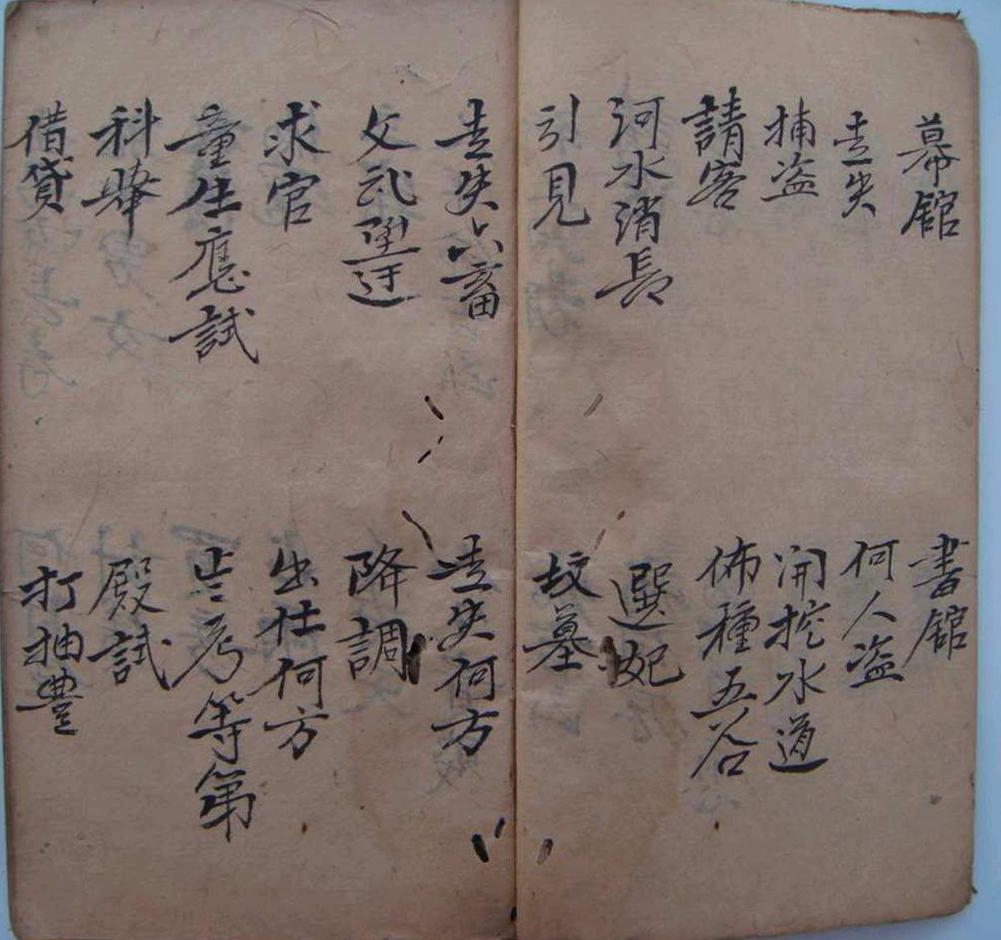 幕館
書館
走失
何人盗
捕盗
開挖水道
請客
佈種五谷
河水消長
選妃
引見
坟墓
走失六畜
走失何方
文武陞迁
降調
求官
出仕何方
童生應試
歲考等第
科舉
殿試
借貸
打抽豊